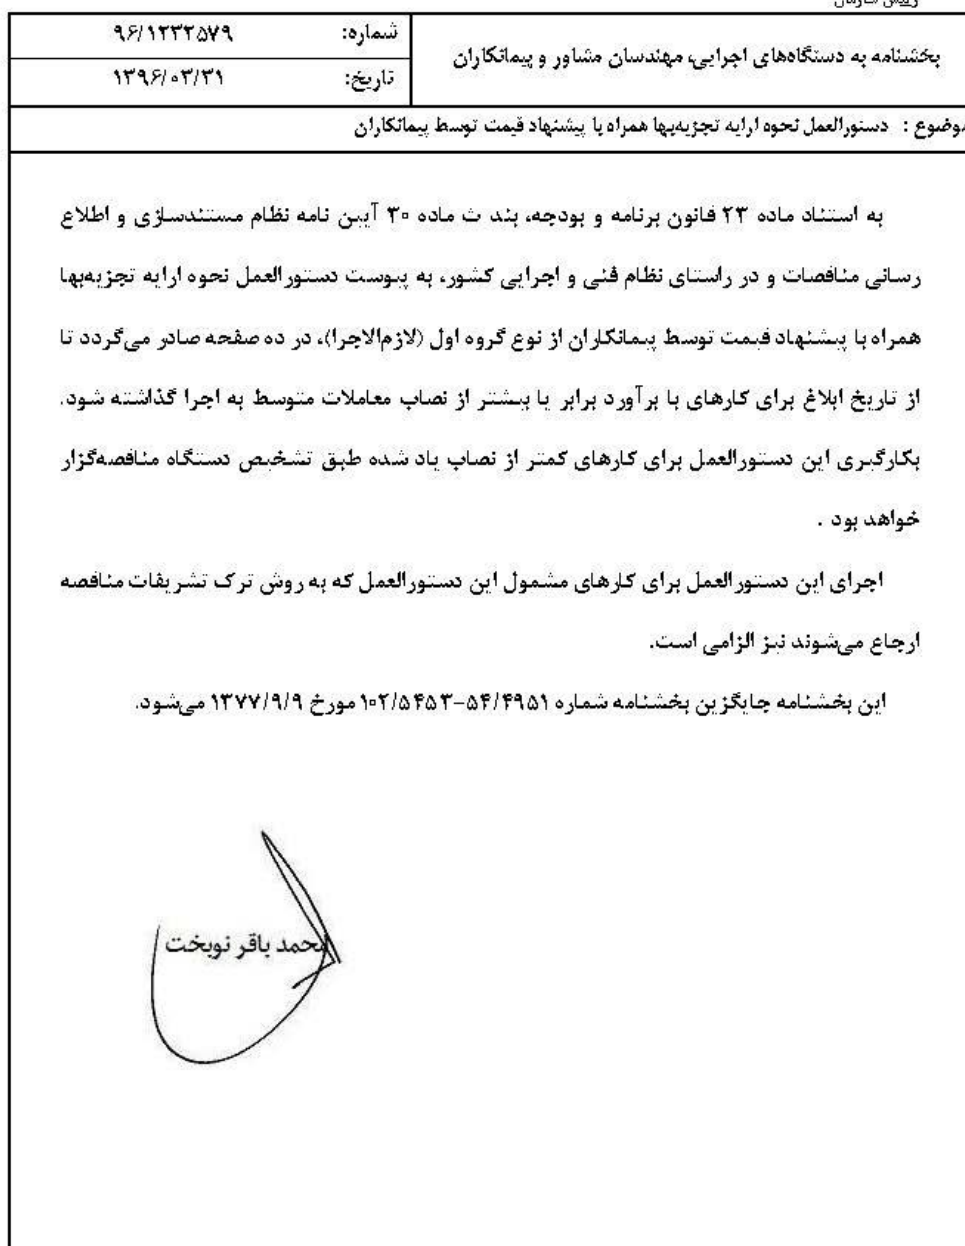 رییس سازمان
بخشنامه به دستگاه‌های اجرایی، مهندسان مشاور و پیمانکاران
شماره: ۹۶/۱۲۳۲۵۷۹
تاریخ: ۱۳۹۶/۰۳/۳۱
موضوع : دستورالعمل نحوه ارایه تجزیه‌بها همراه با پیشنهاد قیمت توسط پیمانکاران
به استناد ماده ۲۳ قانون برنامه و بودجه، بند ث ماده ۳۰ آیین نامه نظام مستندسازی و اطلاع
رسانی مناقصات و در راستای نظام فنی و اجرایی کشور، به پیوست دستورالعمل نحوه ارایه تجزیه‌بها
همراه با پیشنهاد قیمت توسط پیمانکاران از نوع گروه اول (لازم‌الاجرا)، در ده صفحه صادر می‌گردد تا
از تاریخ ابلاغ برای کارهای با برآورد برابر یا بیشتر از نصاب معاملات متوسط به اجرا گذاشته شود.
بکارگیری این دستورالعمل برای کارهای کمتر از نصاب یاد شده طبق تشخیص دستگاه مناقصه‌گزار
خواهد بود .
اجرای این دستورالعمل برای کارهای مشمول این دستورالعمل که به روش ترک تشریفات مناقصه
ارجاع می‌شوند نیز الزامی است.
این بخشنامه جایگزین بخشنامه شماره ۱۰۲/۵۴۵۳-۵۴/۴۹۵۱ مورخ ۱۳۷۷/۹/۹ می‌شود.
محمد باقر نوبخت